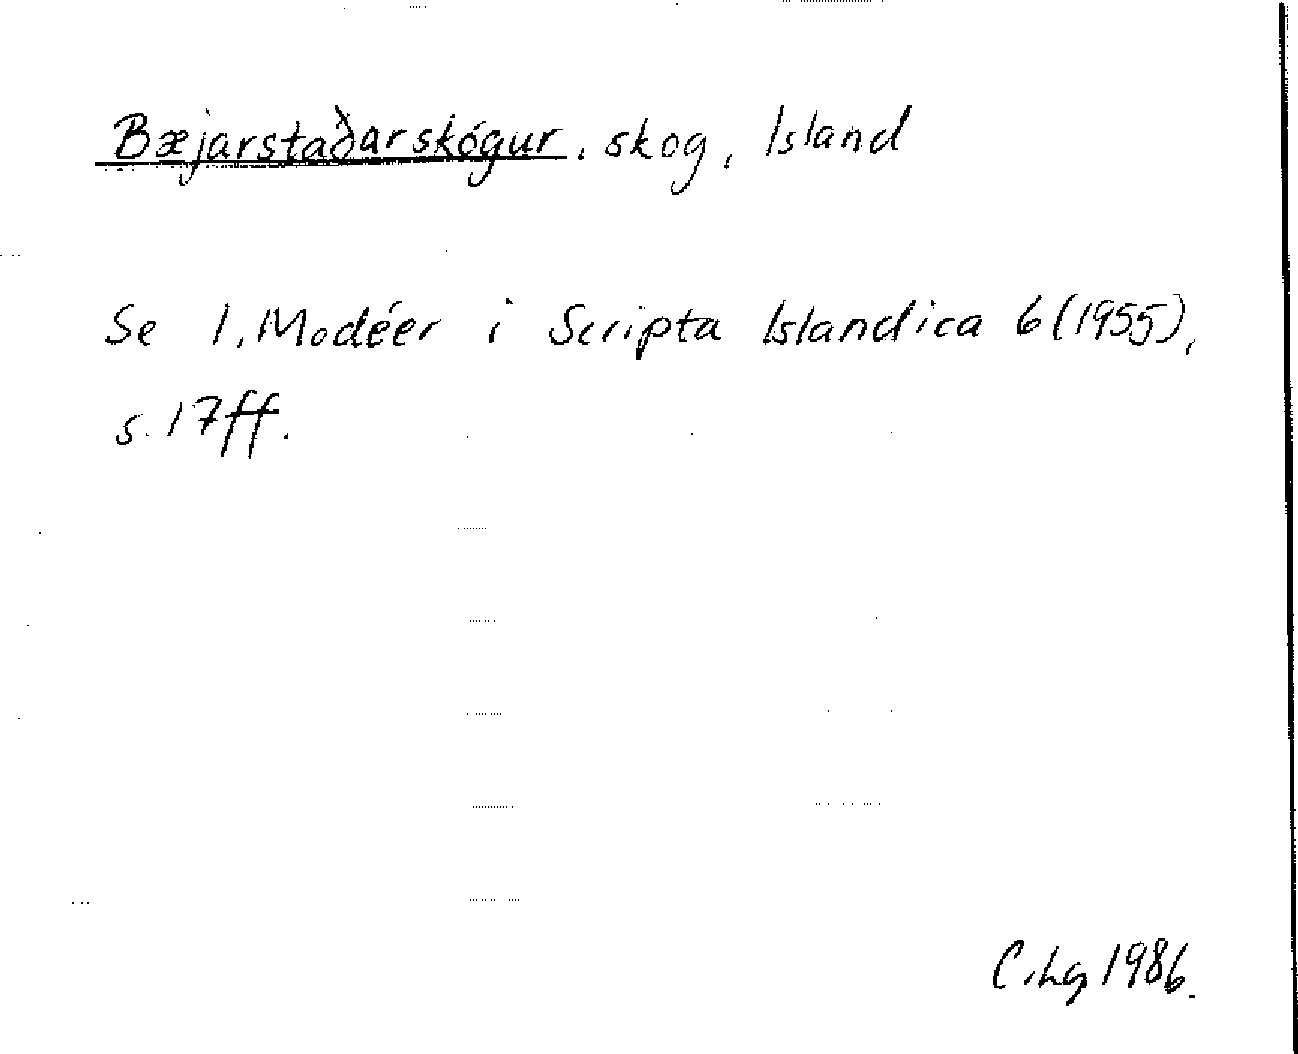 Bæjarstaðarskógur, skog, Island
Se I. Modéer i Scripta Islandica 6 (1955),
s. 17ff.
1986.